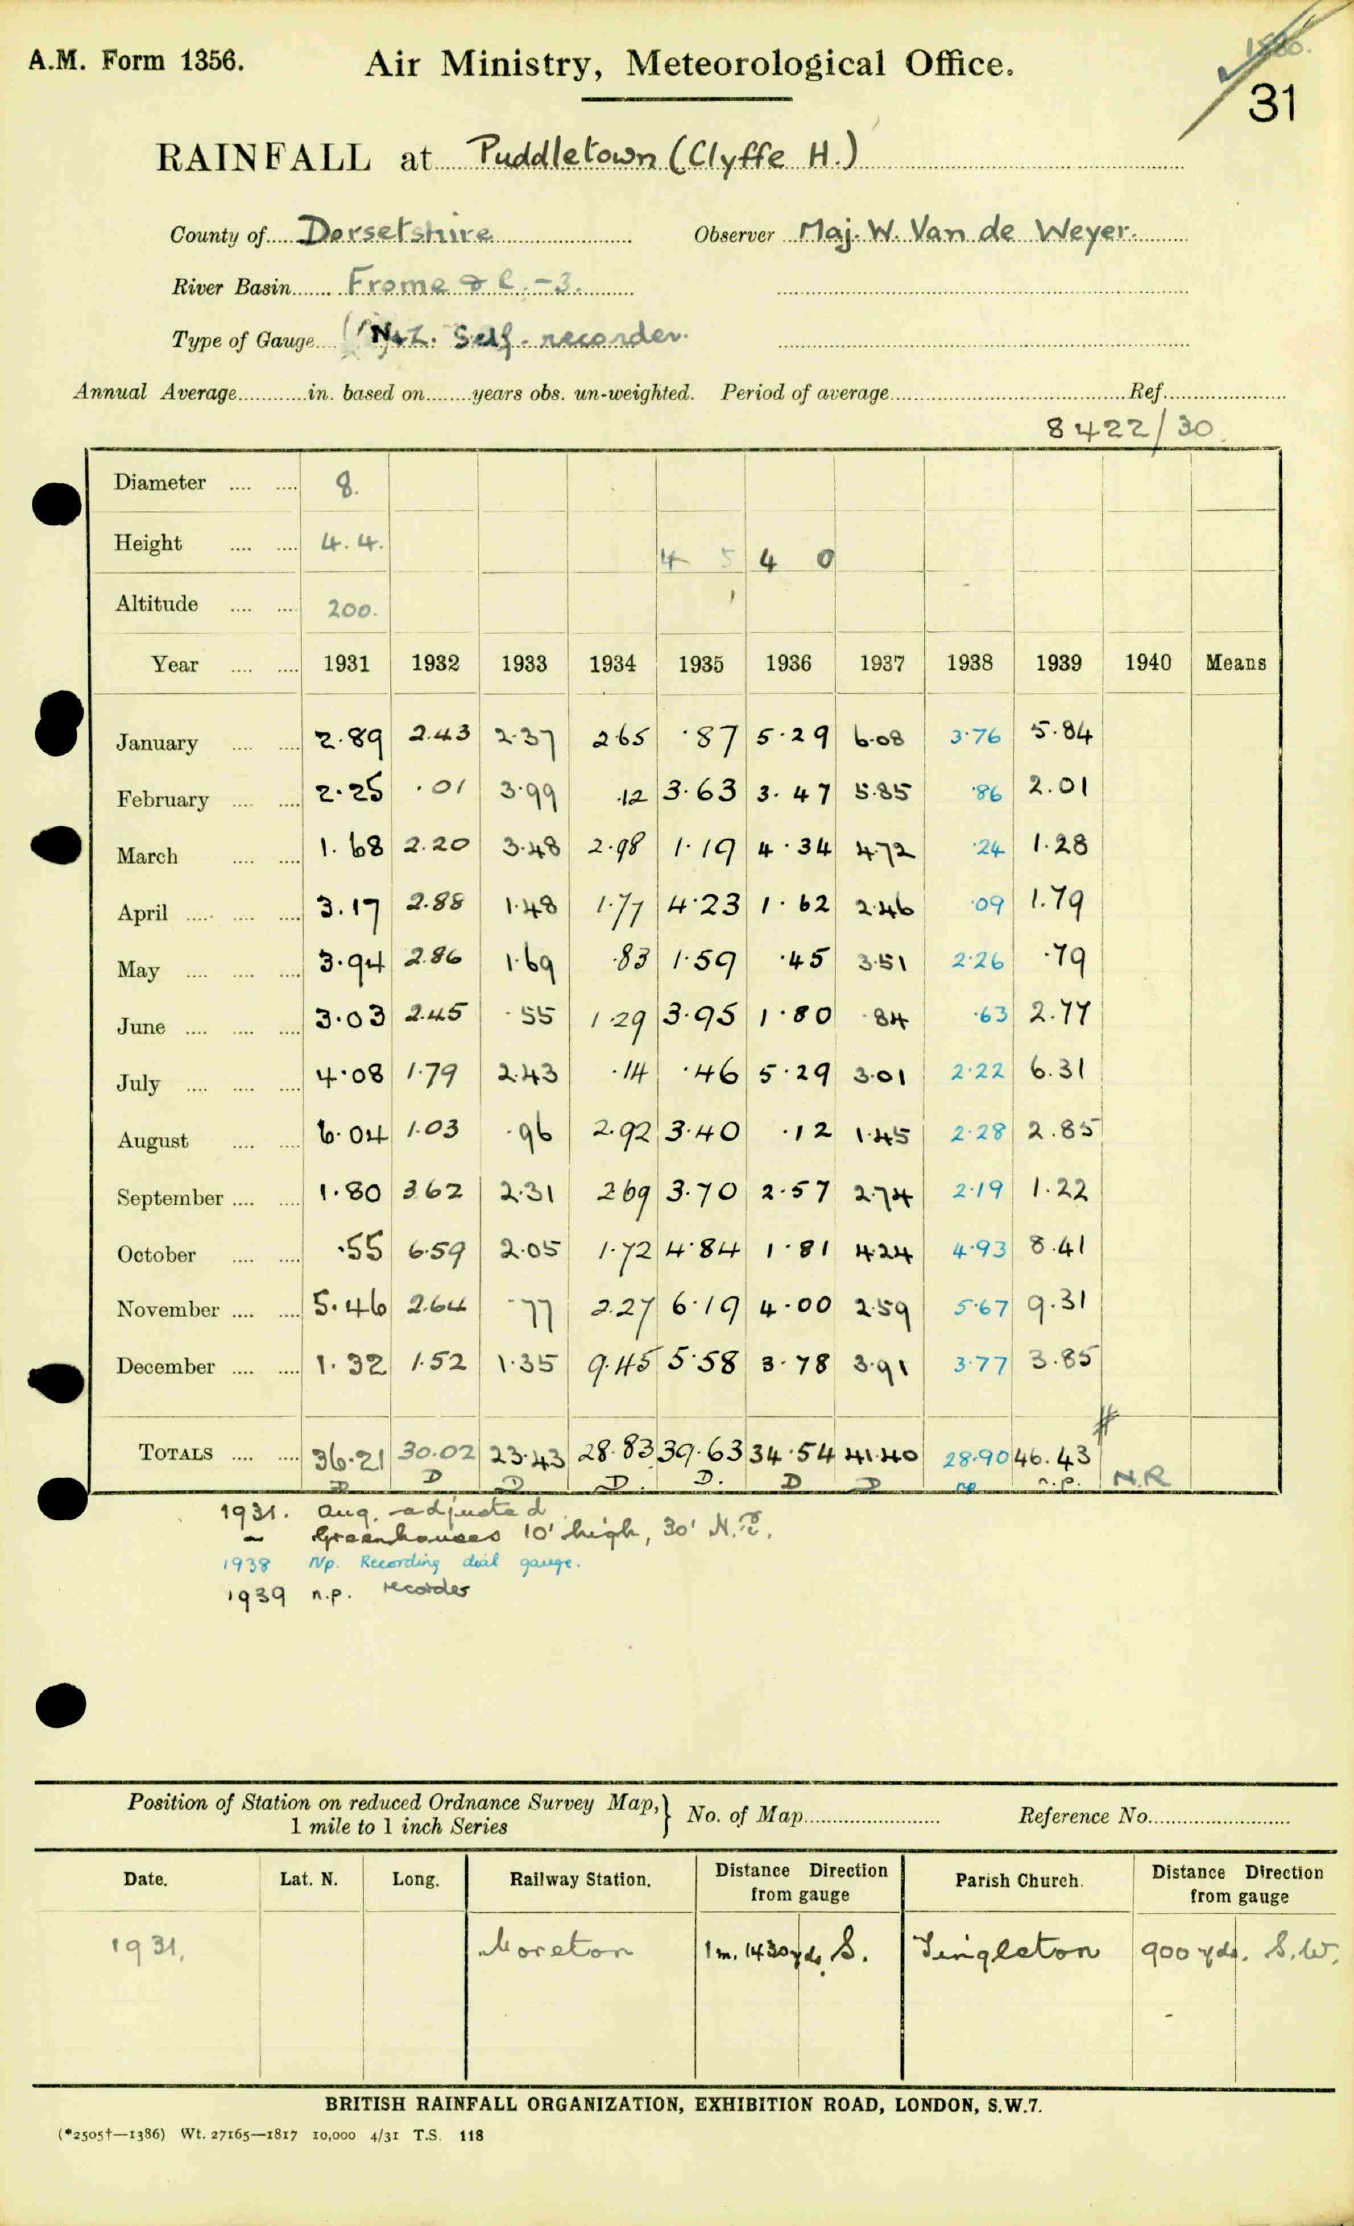 A.M. Form 1356.
Air Ministry, Meteorological Office.
31
RAINFALL at Puddletown (Clyffe H.)
County of Dorsetshire Observer Maj. W. Van de Weyer.
River Basin Frome & C. - 3.
Type of Gauge Self-recorder.
Annual Average in. based on years obs. un-weighted. Period of average Ref.
8422/30.
Diameter 8.
Height 4.4. 4 5 4 0
Altitude 200.
Year 1931 1932 1933 1934 1935 1936 1937 1938 1939 1940 Means
January 2.89 2.43 2.37 2.65 .87 5.29 6.08 3.76 5.84
February 2.25 .01 3.99 .12 3.63 3.47 5.85 .86 2.01
March 1.68 2.20 3.48 2.98 1.19 4.34 4.72 .24 1.28
April 3.17 2.88 1.48 1.77 4.23 1.62 2.46 .09 1.79
May 3.94 2.86 1.69 .83 1.59 .45 3.51 2.26 .79
June 3.03 2.45 .55 1.29 3.95 1.80 .84 .63 2.77
July 4.08 1.79 2.43 .14 .46 5.29 3.01 2.22 6.31
August 6.04 1.03 .96 2.92 3.40 .12 1.45 2.28 2.85
September 1.80 3.62 2.31 2.69 3.70 2.57 2.74 2.19 1.22
October .55 6.59 2.05 1.72 4.84 1.81 4.24 4.93 8.41
November 5.46 2.64 .77 2.27 6.19 4.00 2.59 5.67 9.31
December 1.32 1.52 1.35 9.45 5.58 3.78 3.91 3.77 3.85
TOTALS 36.21 30.02 23.43 28.83 39.63 34.54 41.40 28.90 46.43
D D D D. D. D D np n.p. N.R
1931. Aug. adjusted
Greenhouses 10' high, 30' N.E.
1938 Np. Recording dial gauge.
1939 n.p. recorder
Position of Station on reduced Ordnance Survey Map, 1 mile to 1 inch Series } No. of Map Reference No.
Date. Lat. N. Long. Railway Station. Distance Direction from gauge Parish Church. Distance Direction from gauge
1931. Moreton 1m. 1430 yds. S. Tingleton 900 yds. S.W.
BRITISH RAINFALL ORGANIZATION, EXHIBITION ROAD, LONDON, S.W.7.
(*2505†—1386) Wt. 27165—1817 10,000 4/31 T.S. 118